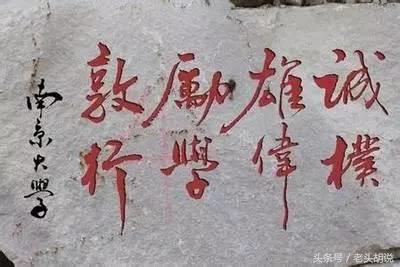 誠樸
雄偉
勵學
敦行
南京大學
头条号/老头胡说